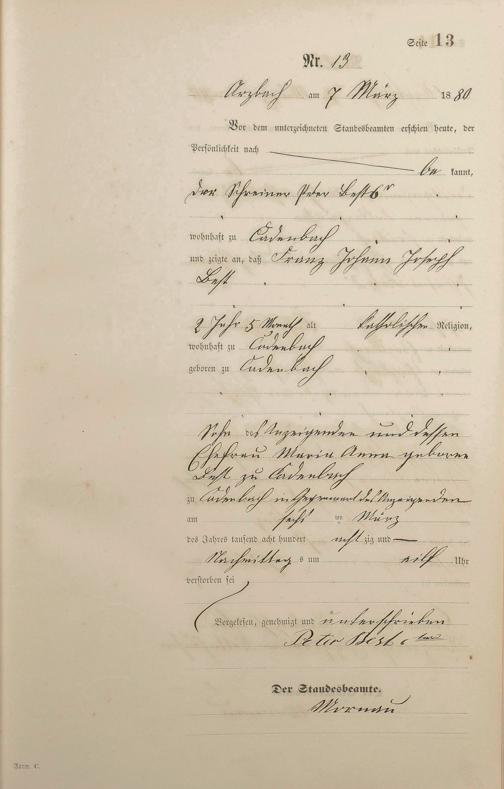 Seite 13
Nr. 13
Arzbach am 7 März 1880
Vor dem unterzeichneten Standesbeamten erschien heute, der
Persönlichkeit nach
be kannt,
der Schreiner Peter Best 6r
wohnhaft zu Cadenbach
und zeigte an, daß Franz Johann Joseph
Best
2 Jahr 5 Monath alt katholischer Religion,
wohnhaft zu Cadenbach
geboren zu Cadenbach
Sohn des Anzeigenden und dessen
Ehefrau Maria Anna geborne
Best zu Cadenbach
zu Cadenbach in Gegenwart des Anzeigenden
am sechs ten März
des Jahres tausend acht hundert acht zig und
Nachmittag s um eilf Uhr
verstorben sei
Vorgelesen, genehmigt und unterschrieben
Peter Best 6ter
Der Standesbeamte.
Mornau
Form. C.